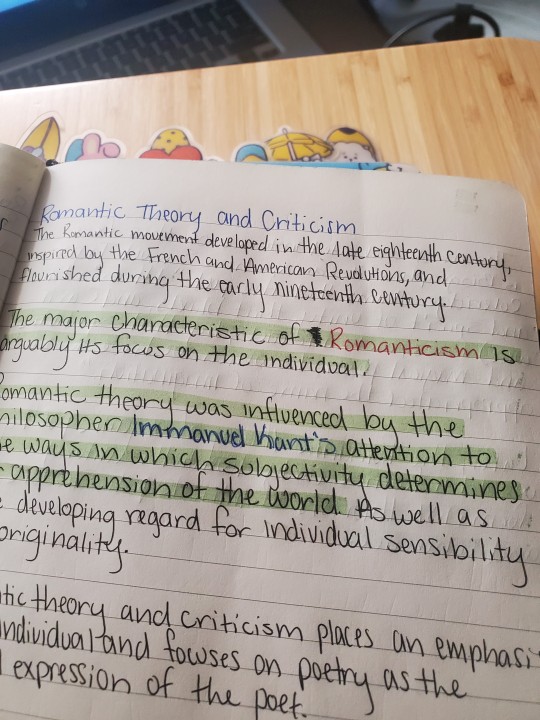 Romantic Theory and Criticism
The Romantic movement developed in the late eighteenth century,
inspired by the French and American Revolutions, and
flourished during the early nineteenth century.
The major characteristic of Romanticism is
arguably its focus on the individual.
omantic theory was influenced by the
hilosopher Immanuel Kant's attention to
e ways in which subjectivity determines
apprehension of the world. As well as
developing regard for individual sensibility
originality.
tic theory and criticism places an emphasi
individual and focuses on poetry as the
expression of the poet.